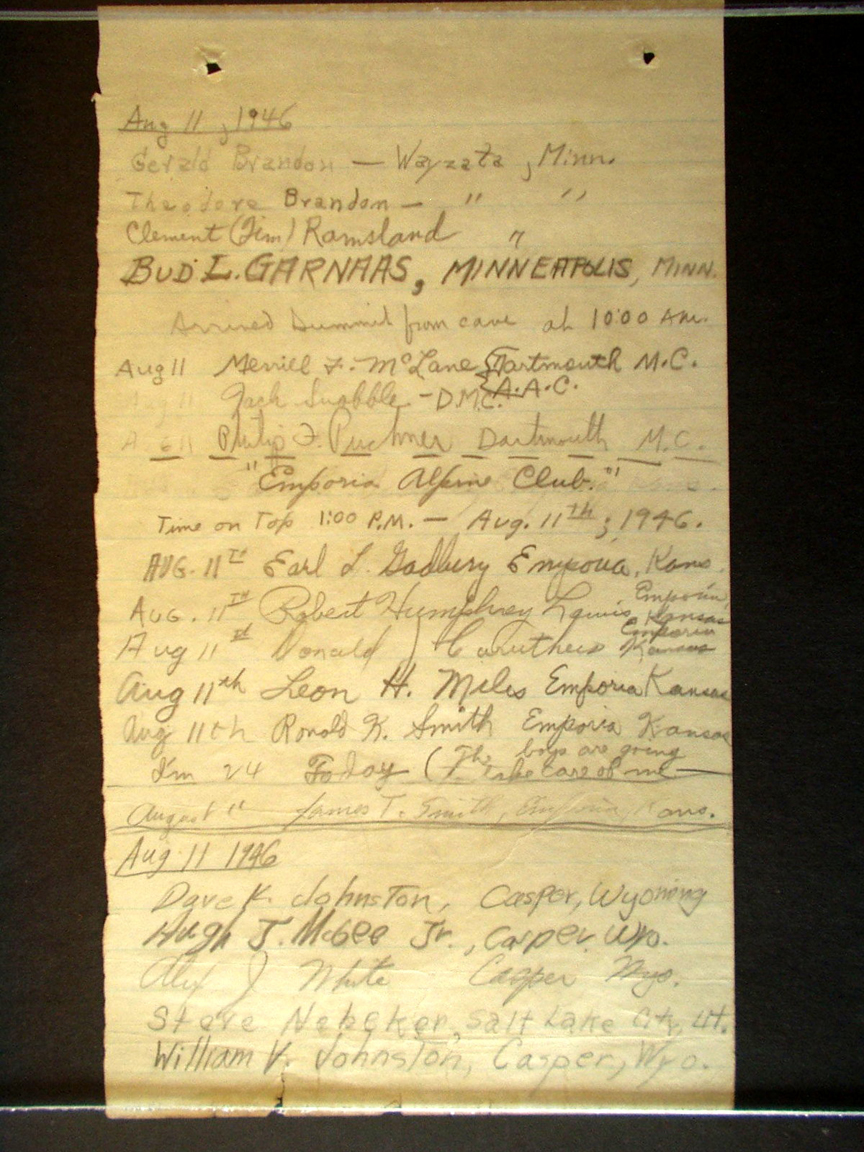 Aug 11, 1946
Gerald Brandon — Wayzata, Minn.
Theodore Brandon — " "
Clement (Tim) Ramsland "
BUD L. GARNAAS, MINNEAPOLIS, MINN.
Arrived Summit from cave at 10:00 AM.
Aug 11 Merrill F. McLane Dartmouth M.C.
A.A.C.
Aug 11 Jack - D.M.C.
Aug 11 Philip F. Puchner Dartmouth M.C.
"Emporia Alpine Club."
Time on Top 1:00 P.M. — Aug. 11th, 1946.
AUG. 11TH Earl L. Gadbury Emporia, Kans.
AUG. 11TH Robert Humphrey Lewis Emporia, Kansas
Aug 11th Donald J Caruthers Emporia Kansas
Aug 11th Leon H. Miles Emporia Kansas
Aug 11th Ronald K. Smith Emporia Kansas
I'm 24 Today (The boys are going
take care of me
August 11 James T. Smith, Emporia, Kans.
Aug 11 1946
Dave K. Johnston, Casper, Wyoming
Hugh J. McGee Jr., Casper, Wyo.
Alex J White Casper Wyo.
Steve Nebeker, Salt Lake City, Ut.
William V. Johnston, Casper, Wyo.